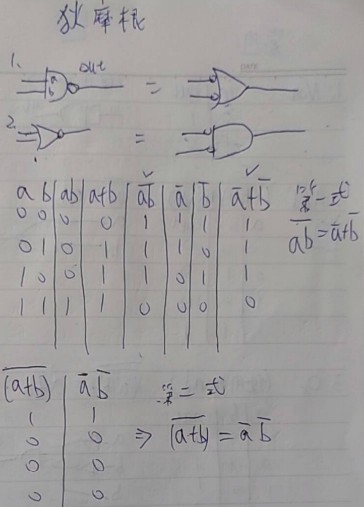 狄摩根
1.
a
b
out
=
2.
=
a b ab a+b a̅b̅ a̅ b̅ a̅+b̅
0 0 0 0 1 1 1 1
0 1 0 1 1 1 0 1
1 0 0 1 1 0 1 1
1 1 1 1 0 0 0 0
第一式
a̅b̅=a̅+b̅
(a+b)̅ a̅ b̅
1 1
0 0
0 0
0 0
第二式
⇒ (a+b)̅ = a̅ b̅